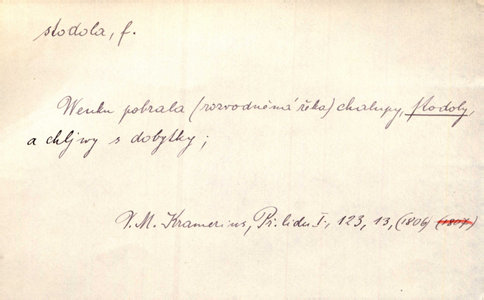 stodola, f.
Wenku pobrala (rozvodněmá řeka) chalupy, stodoly,
a chljwy s dobytky;
V. M. Kramerius, Př. lidu I, 123, 13, (1806) (1807)